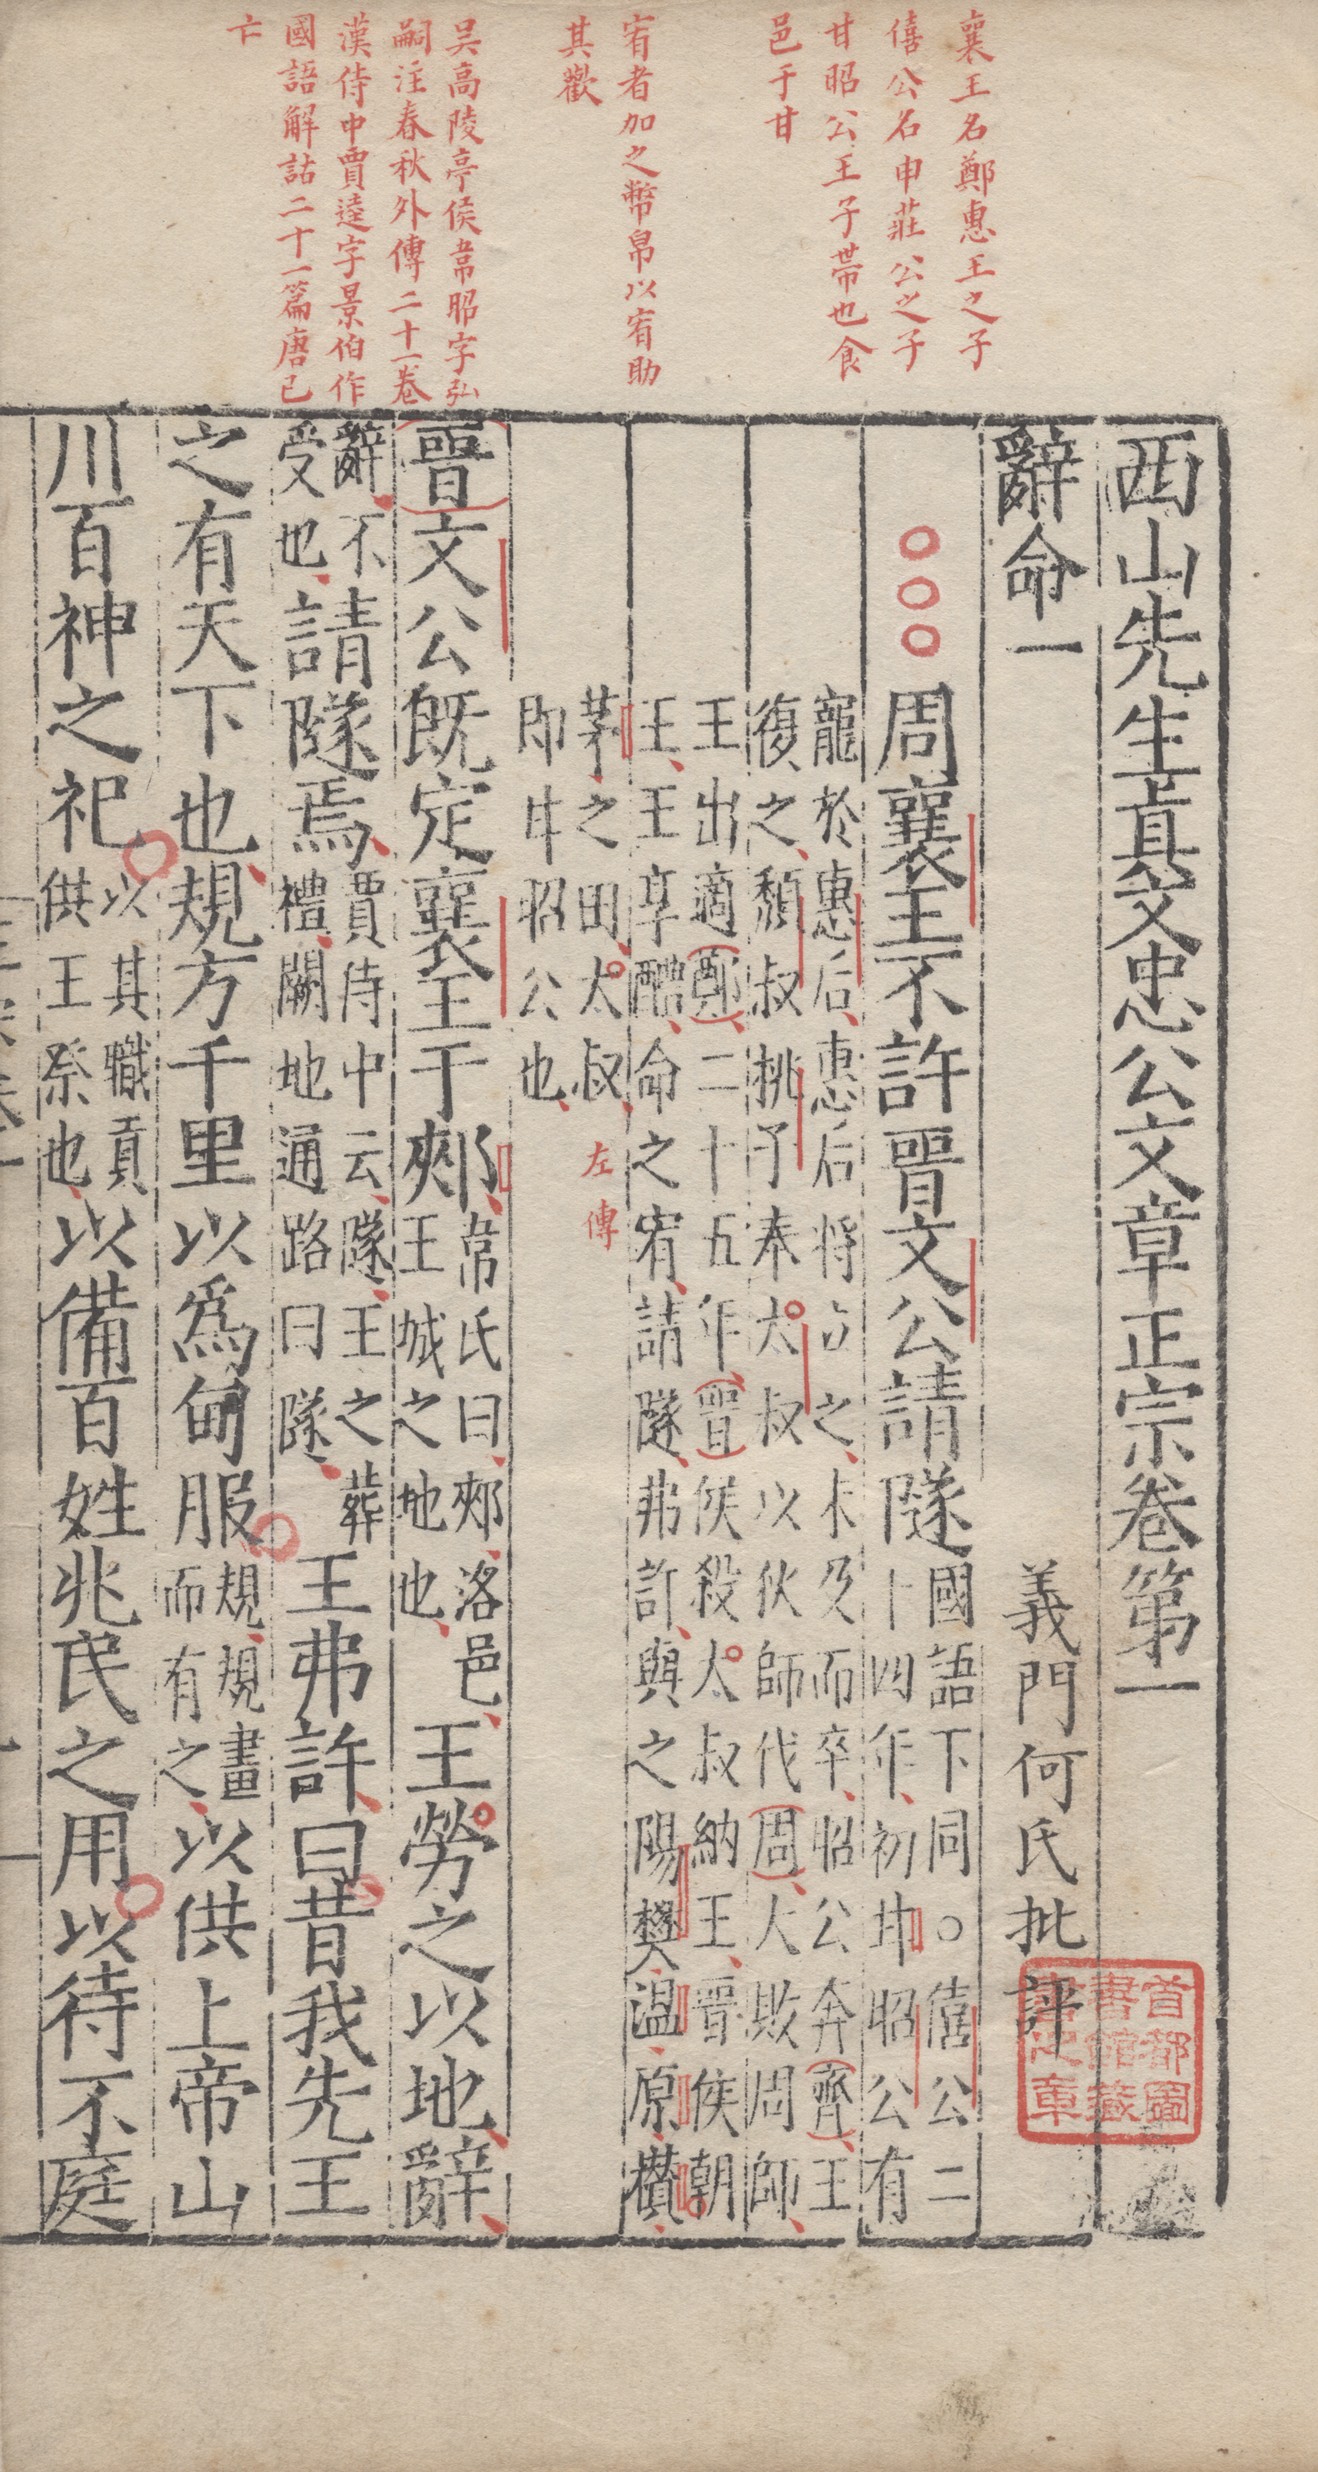 襄王名鄭惠王之子
僖公名申莊公之子
甘昭公王子帶也食
邑于甘
宥者加之幣帛以宥助
其歡
吴高陵亭侯韋昭字弘
嗣注春秋外傳二十一卷
漢侍中賈逵字景伯作
國語解詁二十一篇唐已
亡
西山先生真文忠公文章正宗卷第一
義門何氏批評
辭命一
周襄王不許晉文公請隧
國語下同○僖公二
十四年初甘昭公有
寵於惠后惠后將立之未及而卒昭公奔齊王
復之頹叔挑子奉太叔以伙師代周大敗周師
王出適鄭二十五年晉侯殺太叔納王晉侯朝
王王享醴命之宥請隧弗許與之陽樊温原欑
茅之田太叔
即甘昭公也
左傳
晉文公既定襄王于郟
韋氏曰郟洛邑
王城之地也
王勞之以地辭
辭不
受也
請隧焉
賈侍中云隧王之葬
禮闕地通路曰隧
王弗許曰昔我先王
之有天下也規方千里以爲甸服
規規畫
而有之
以供上帝山
川百神之祀
以其職貢
供王祭也
以備百姓兆民之用以待不庭
首都圖
書館藏
書之章